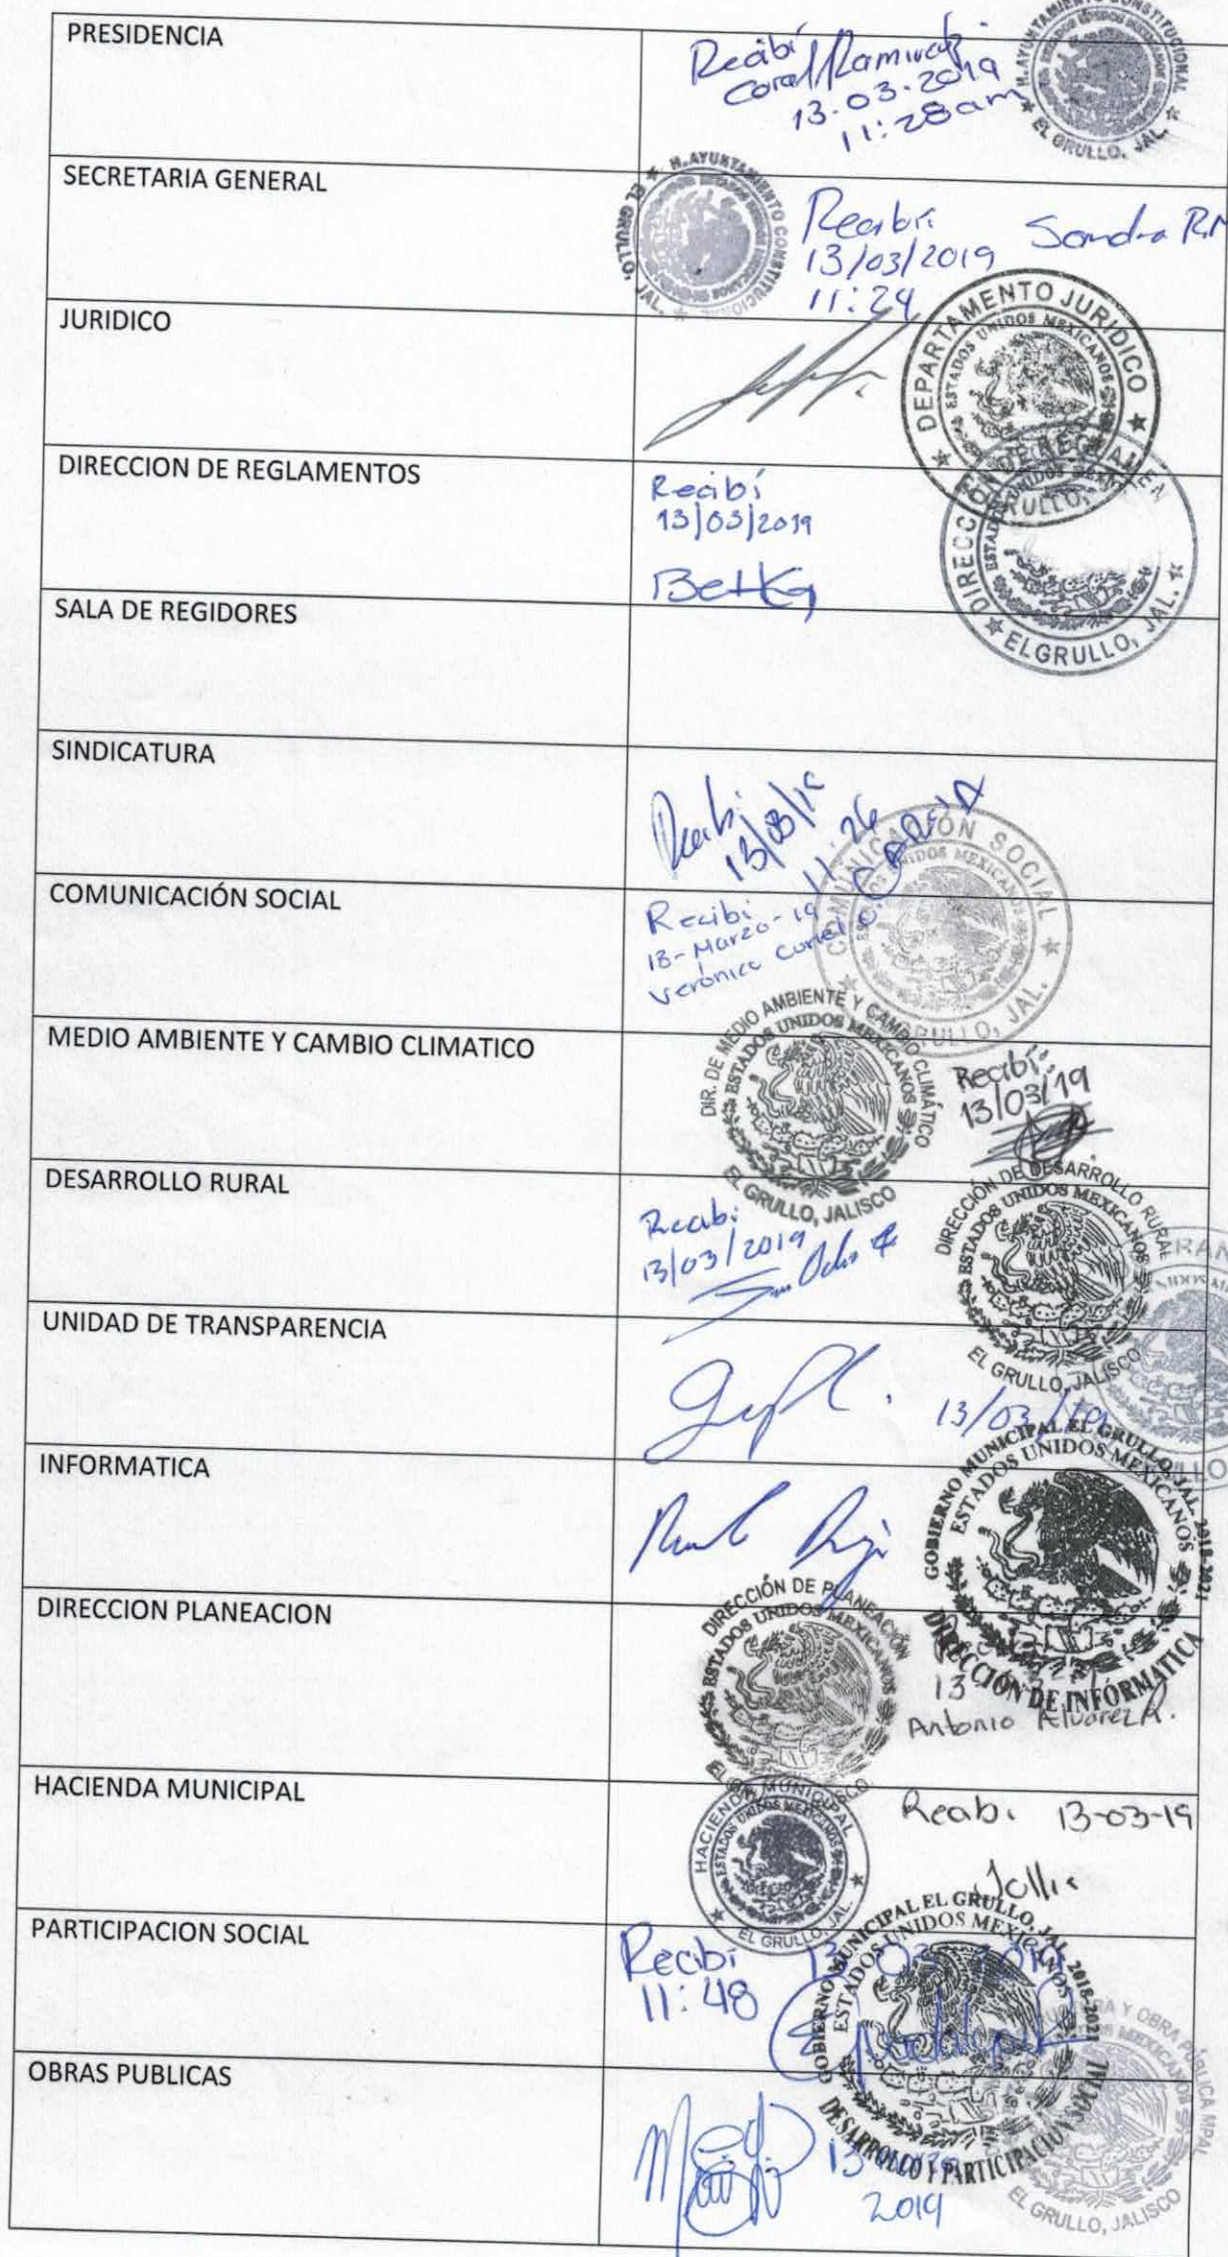 PRESIDENCIA
Recibí
Coral Ramirez
13.03.2019
11:28am
H. AYUNTAMIENTO CONSTITUCIONAL
EL GRULLO, JAL.
SECRETARIA GENERAL
H. AYUNTAMIENTO CONSTITUCIONAL
EL GRULLO, JAL.
Recibí
13/03/2019
11:24
Sandra R.M
JURIDICO
DEPARTAMENTO JURIDICO
ESTADOS UNIDOS MEXICANOS
DIRECCION DE REGLAMENTOS
Recibí
13/03/2019
Betty
ESTADOS UNIDOS
EL GRULLO, JAL.
SALA DE REGIDORES
SINDICATURA
Recibi
13/03/19
11:26
COMUNICACIÓN SOCIAL
Recibi
13-Marzo-19
Verónica Curiel C.
COMUNICACIÓN SOCIAL
UNIDOS MEXICANOS
GRULLO, JAL.
MEDIO AMBIENTE Y CAMBIO CLIMATICO
DIR. DE MEDIO AMBIENTE Y CAMBIO CLIMÁTICO
ESTADOS UNIDOS MEXICANOS
EL GRULLO, JALISCO
Recibí
13/03/19
DESARROLLO RURAL
Recibi
13/03/2019
DIRECCIÓN DE DESARROLLO RURAL
ESTADOS UNIDOS MEXICANOS
EL GRULLO, JALISCO
UNIDAD DE TRANSPARENCIA
13/03/19
INFORMATICA
GOBIERNO MUNICIPAL EL GRULLO, JAL. 2018-2021
ESTADOS UNIDOS MEXICANOS
DIRECCIÓN DE INFORMATICA
DIRECCION PLANEACION
DIRECCIÓN DE PLANEACIÓN
ESTADOS UNIDOS MEXICANOS
13
Antonio Alvarez R.
HACIENDA MUNICIPAL
HACIENDA MUNICIPAL
ESTADOS UNIDOS MEXICANOS
EL GRULLO, JAL.
Recibi 13-03-19
PARTICIPACION SOCIAL
Recibi 13 03 2019
11:48
GOBIERNO MUNICIPAL EL GRULLO, JAL. 2018-2021
ESTADOS UNIDOS MEXICANOS
DESARROLLO Y PARTICIPACION SOCIAL
OBRAS PUBLICAS
13
2019
Y OBRA PÚBLICA MPAL
MEXICANOS
EL GRULLO, JALISCO